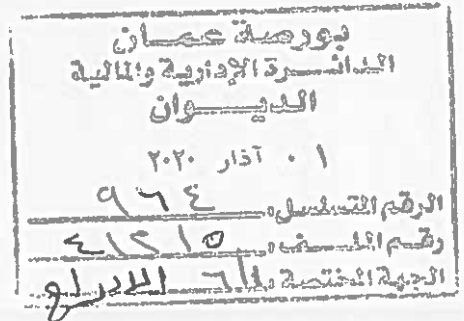 بورصة عمان
الدائرة الإدارية والمالية
الديوان
٠١ آذار ٢٠٢٠
الرقم المتسلسل: ٩٦٤
رقم الملف: ٤١٢١٥
الجهة المختصة: الإدراج